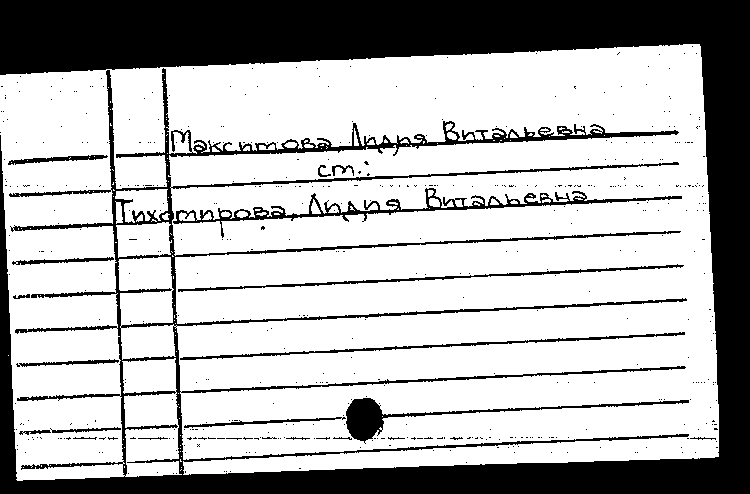 Максимова, Лидия Витальевна
см.:
Тихомирова, Лидия Витальевна